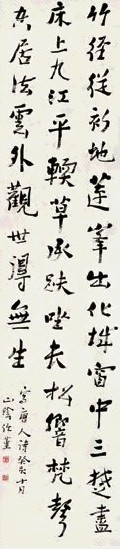 竹徑從初地蓮峯出化城窗中三楚盡
林上九江平輭草承趺坐長松響梵聲
空居法雲外觀世得無生
寫唐人詩癸亥十月
山陰任堇